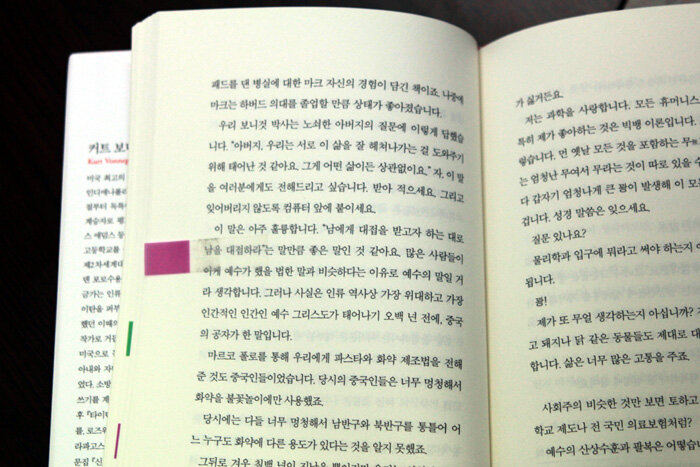 커트 보니
Kurt Vonneg
미국 최고의
인디애나폴리
절부터 독특
계승자로 평
스 애덤스 등
고등학교를
제2차세계대
덴 포로수용
금가는 인류
이탄을 퍼부
했던 이때의
작가로 거듭
미국으로 돌
아내와 자
었다. 소방
쓰기를 계
후 『타이
를, 로즈워
라파고스
문집 『신
패드를 댄 병실에 대한 마크 자신의 경험이 담긴 책이죠. 나중에
마크는 하버드 의대를 졸업할 만큼 상태가 좋아졌습니다.
우리 보니것 박사는 노쇠한 아버지의 질문에 이렇게 답했습
니다. "아버지, 우리는 서로 이 삶을 잘 헤쳐나가는 걸 도와주기
위해 태어난 것 같아요. 그게 어떤 삶이든 상관없이요." 자, 이 말
을 여러분에게도 전해드리고 싶습니다. 받아 적으세요. 그리고
잊어버리지 않도록 컴퓨터 앞에 붙이세요.
이 말은 아주 훌륭합니다. "남에게 대접을 받고자 하는 대로
남을 대접하라"는 말만큼 좋은 말인 것 같아요. 많은 사람들이
이게 예수가 했을 법한 말과 비슷하다는 이유로 예수의 말일 거
라 생각합니다. 그러나 사실은 인류 역사상 가장 위대하고 가장
인간적인 인간인 예수 그리스도가 태어나기 오백 년 전에, 중국
의 공자가 한 말입니다.
마르코 폴로를 통해 우리에게 파스타와 화약 제조법을 전해
준 것도 중국인들이었습니다. 당시의 중국인들은 너무 멍청해서
화약을 불꽃놀이에만 사용했죠.
당시에는 다들 너무 멍청해서 남반구와 북반구를 통틀어 어
느 누구도 화약에 다른 용도가 있다는 것을 알지 못했죠.
그뒤로 겨우 칠백 년이 지났을 뿐이지만
가 싫거든요.
저는 과학을 사랑합니다. 모든 휴머니스
특히 제가 좋아하는 것은 빅뱅 이론입니다.
다. 먼 옛날 모든 것을 포함하는 무無
는 엄청난 무여서 무라는 것이 따로 있을 수
다 갑자기 엄청나게 큰 꽝이 발생해 이 모
겁니다. 성경 말씀은 잊으세요.
질문 있나요?
물리학과 입구에 뭐라고 써야 하는지 아
됩니다.
꽝!
제가 또 무얼 생각하는지 아십니까?
고 돼지나 닭 같은 동물들도 제대로 대
합니다. 삶은 너무 많은 고통을 주죠.
사회주의 비슷한 것만 보면 토하고
학교 제도나 전 국민 의료보험처럼?
예수의 산상수훈과 팔복은 어떻습